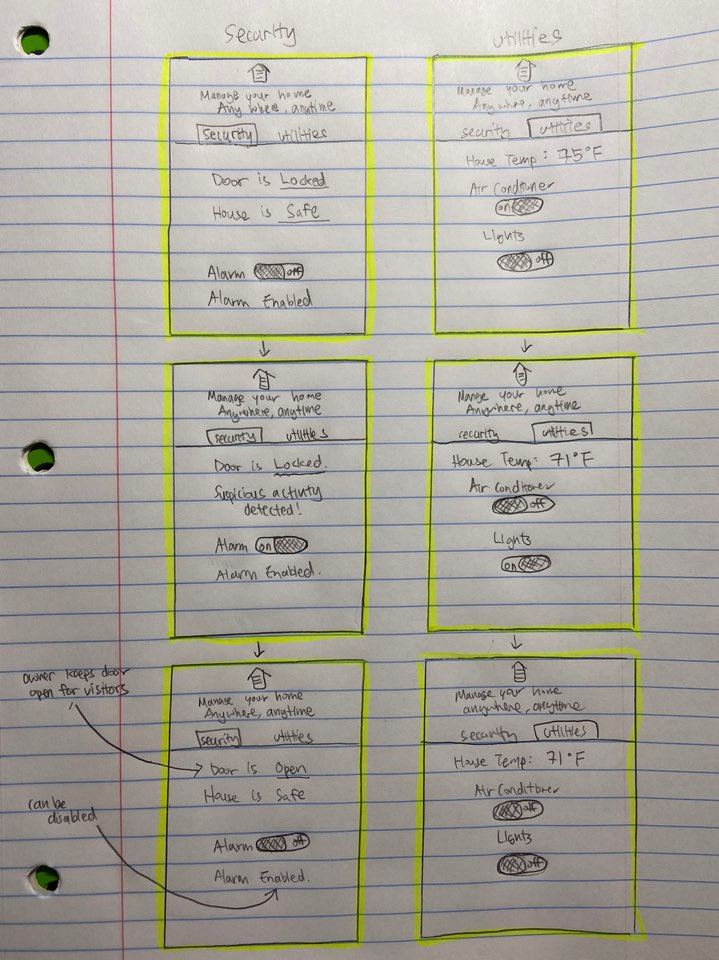 Security
Manage your home
Any where, anytime
Security utilities
Door is Locked
House is Safe
Alarm off
Alarm Enabled
Manage your home
Anywhere, anytime
security utilities
Door is Locked.
Suspicious activity
detected!
Alarm on
Alarm Enabled.
owner keeps door
open for visitors
can be
disabled
Manage your home
Anywhere, anytime
security utilities
Door is Open
House is Safe
Alarm off
Alarm Enabled.
utilities
Manage your home
Anywhere, anytime
security utilities
House Temp: 75°F
Air Conditioner
on
Lights
off
Manage your home
Anywhere, anytime
security utilities
House Temp: 71°F
Air conditioner
off
Lights
on
Manage your home
anywhere, anytime
security utilities
House Temp: 71°F
Air Conditioner
off
Lights
off